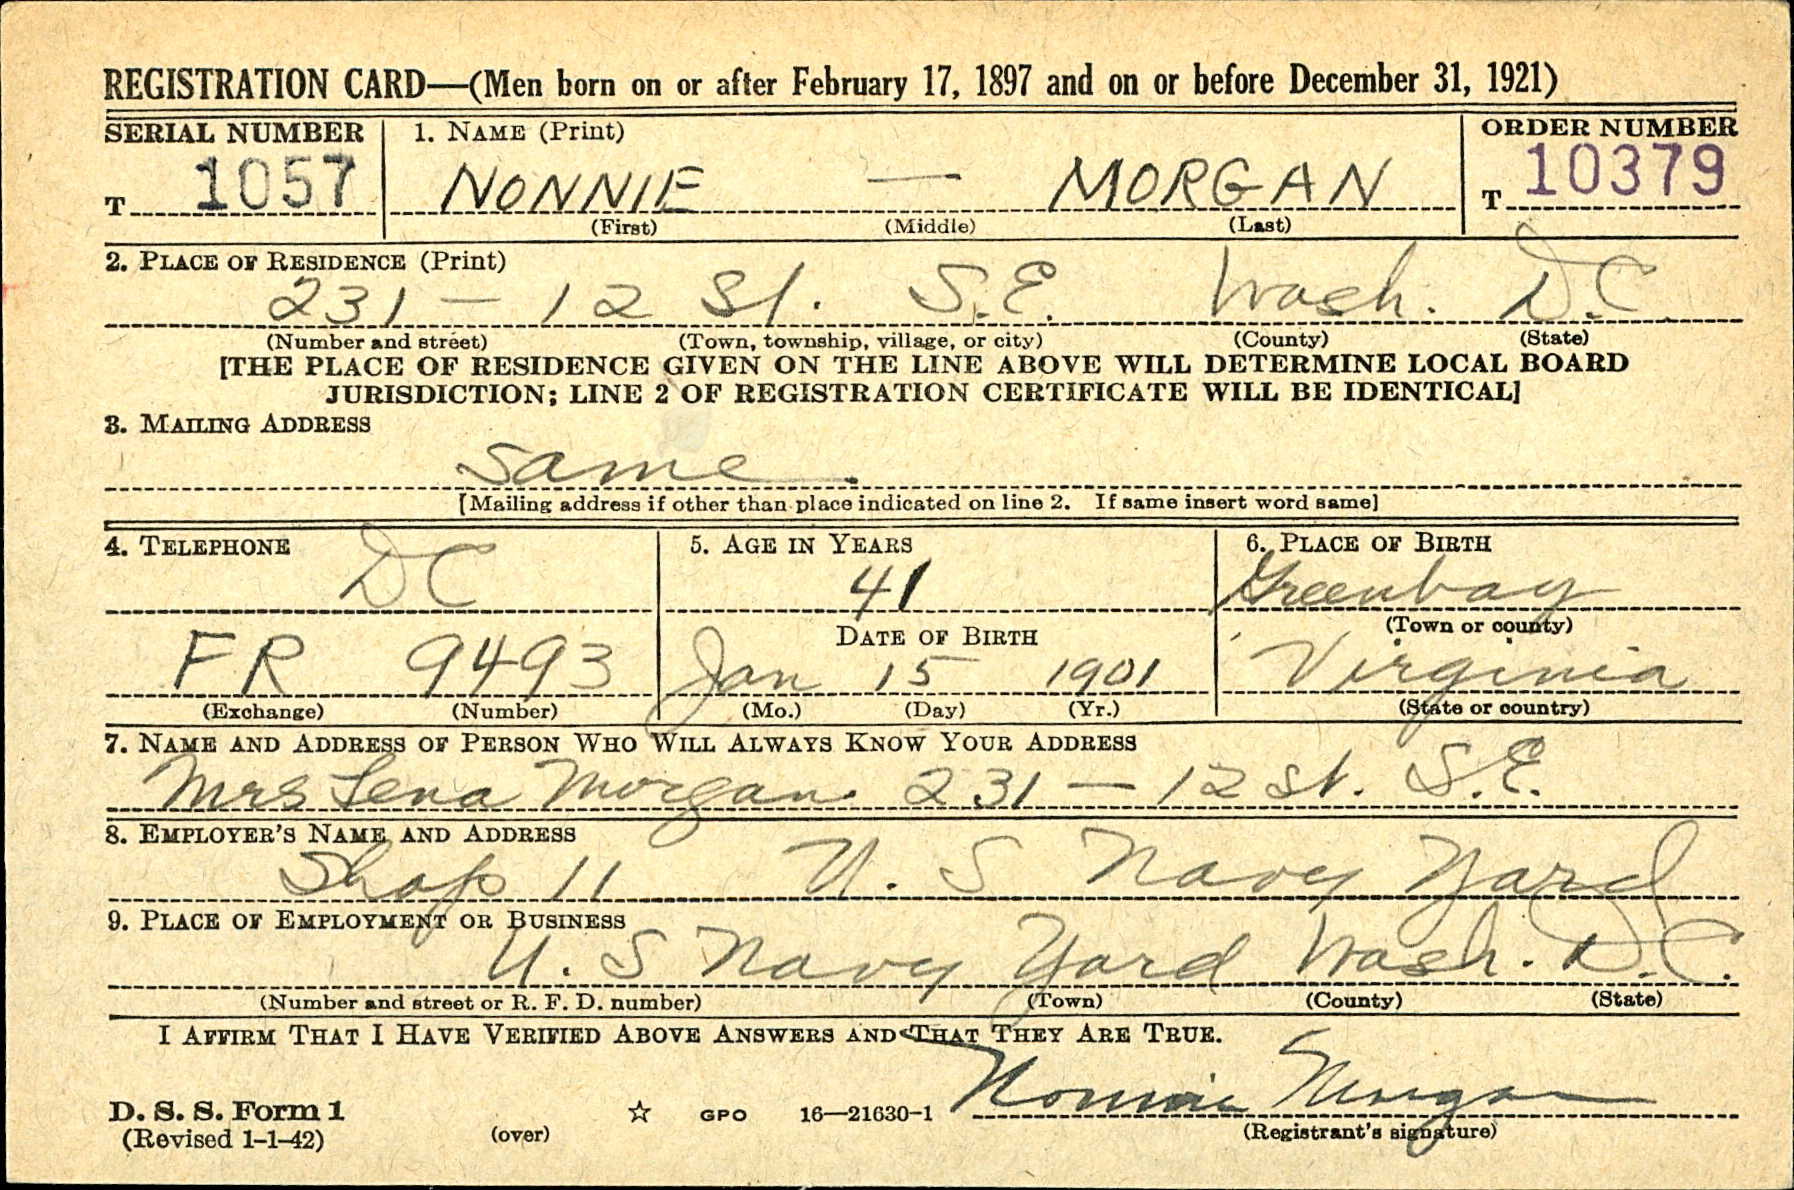 REGISTRATION CARD—(Men born on or after February 17, 1897 and on or before December 31, 1921)
SERIAL NUMBER 1. NAME (Print) ORDER NUMBER
T 1057 NONNIE — MORGAN T 10379
(First) (Middle) (Last)
2. PLACE OF RESIDENCE (Print)
231 — 12 St. S.E. Wash. D.C.
(Number and street) (Town, township, village, or city) (County) (State)
[THE PLACE OF RESIDENCE GIVEN ON THE LINE ABOVE WILL DETERMINE LOCAL BOARD
JURISDICTION; LINE 2 OF REGISTRATION CERTIFICATE WILL BE IDENTICAL]
3. MAILING ADDRESS
Same.
[Mailing address if other than place indicated on line 2. If same insert word same]
4. TELEPHONE 5. AGE IN YEARS 6. PLACE OF BIRTH
DC 41 Greenbay
DATE OF BIRTH (Town or county)
FR 9493 Jan 15 1901 Virginia
(Exchange) (Number) (Mo.) (Day) (Yr.) (State or country)
7. NAME AND ADDRESS OF PERSON WHO WILL ALWAYS KNOW YOUR ADDRESS
Mrs Lena Morgan 231 — 12 St. S.E.
8. EMPLOYER'S NAME AND ADDRESS
Shop 11 U. S Navy Yard
9. PLACE OF EMPLOYMENT OR BUSINESS
U. S Navy Yard Wash. D.C.
(Number and street or R. F. D. number) (Town) (County) (State)
I AFFIRM THAT I HAVE VERIFIED ABOVE ANSWERS AND THAT THEY ARE TRUE.
Nonnie Morgan
D. S. S. Form 1 ☆ GPO 16—21630-1
(Revised 1-1-42) (over) (Registrant's signature)